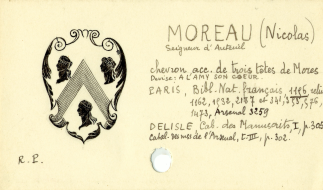 MOREAU (Nicolas)
Seigneur d'Auteuil
chevron acc. de trois têtes de Mores
Devise: A L'AMY SON COEUR
PARIS, Bibl. Nat. français, 1116,
1162, 1932, 2177 et
1473, Arsenal 3259
DELISLE, Cab. des Manuscrits, I, p.
Catal. des mss de l'Arsenal, I-III, p. 302
R.P.